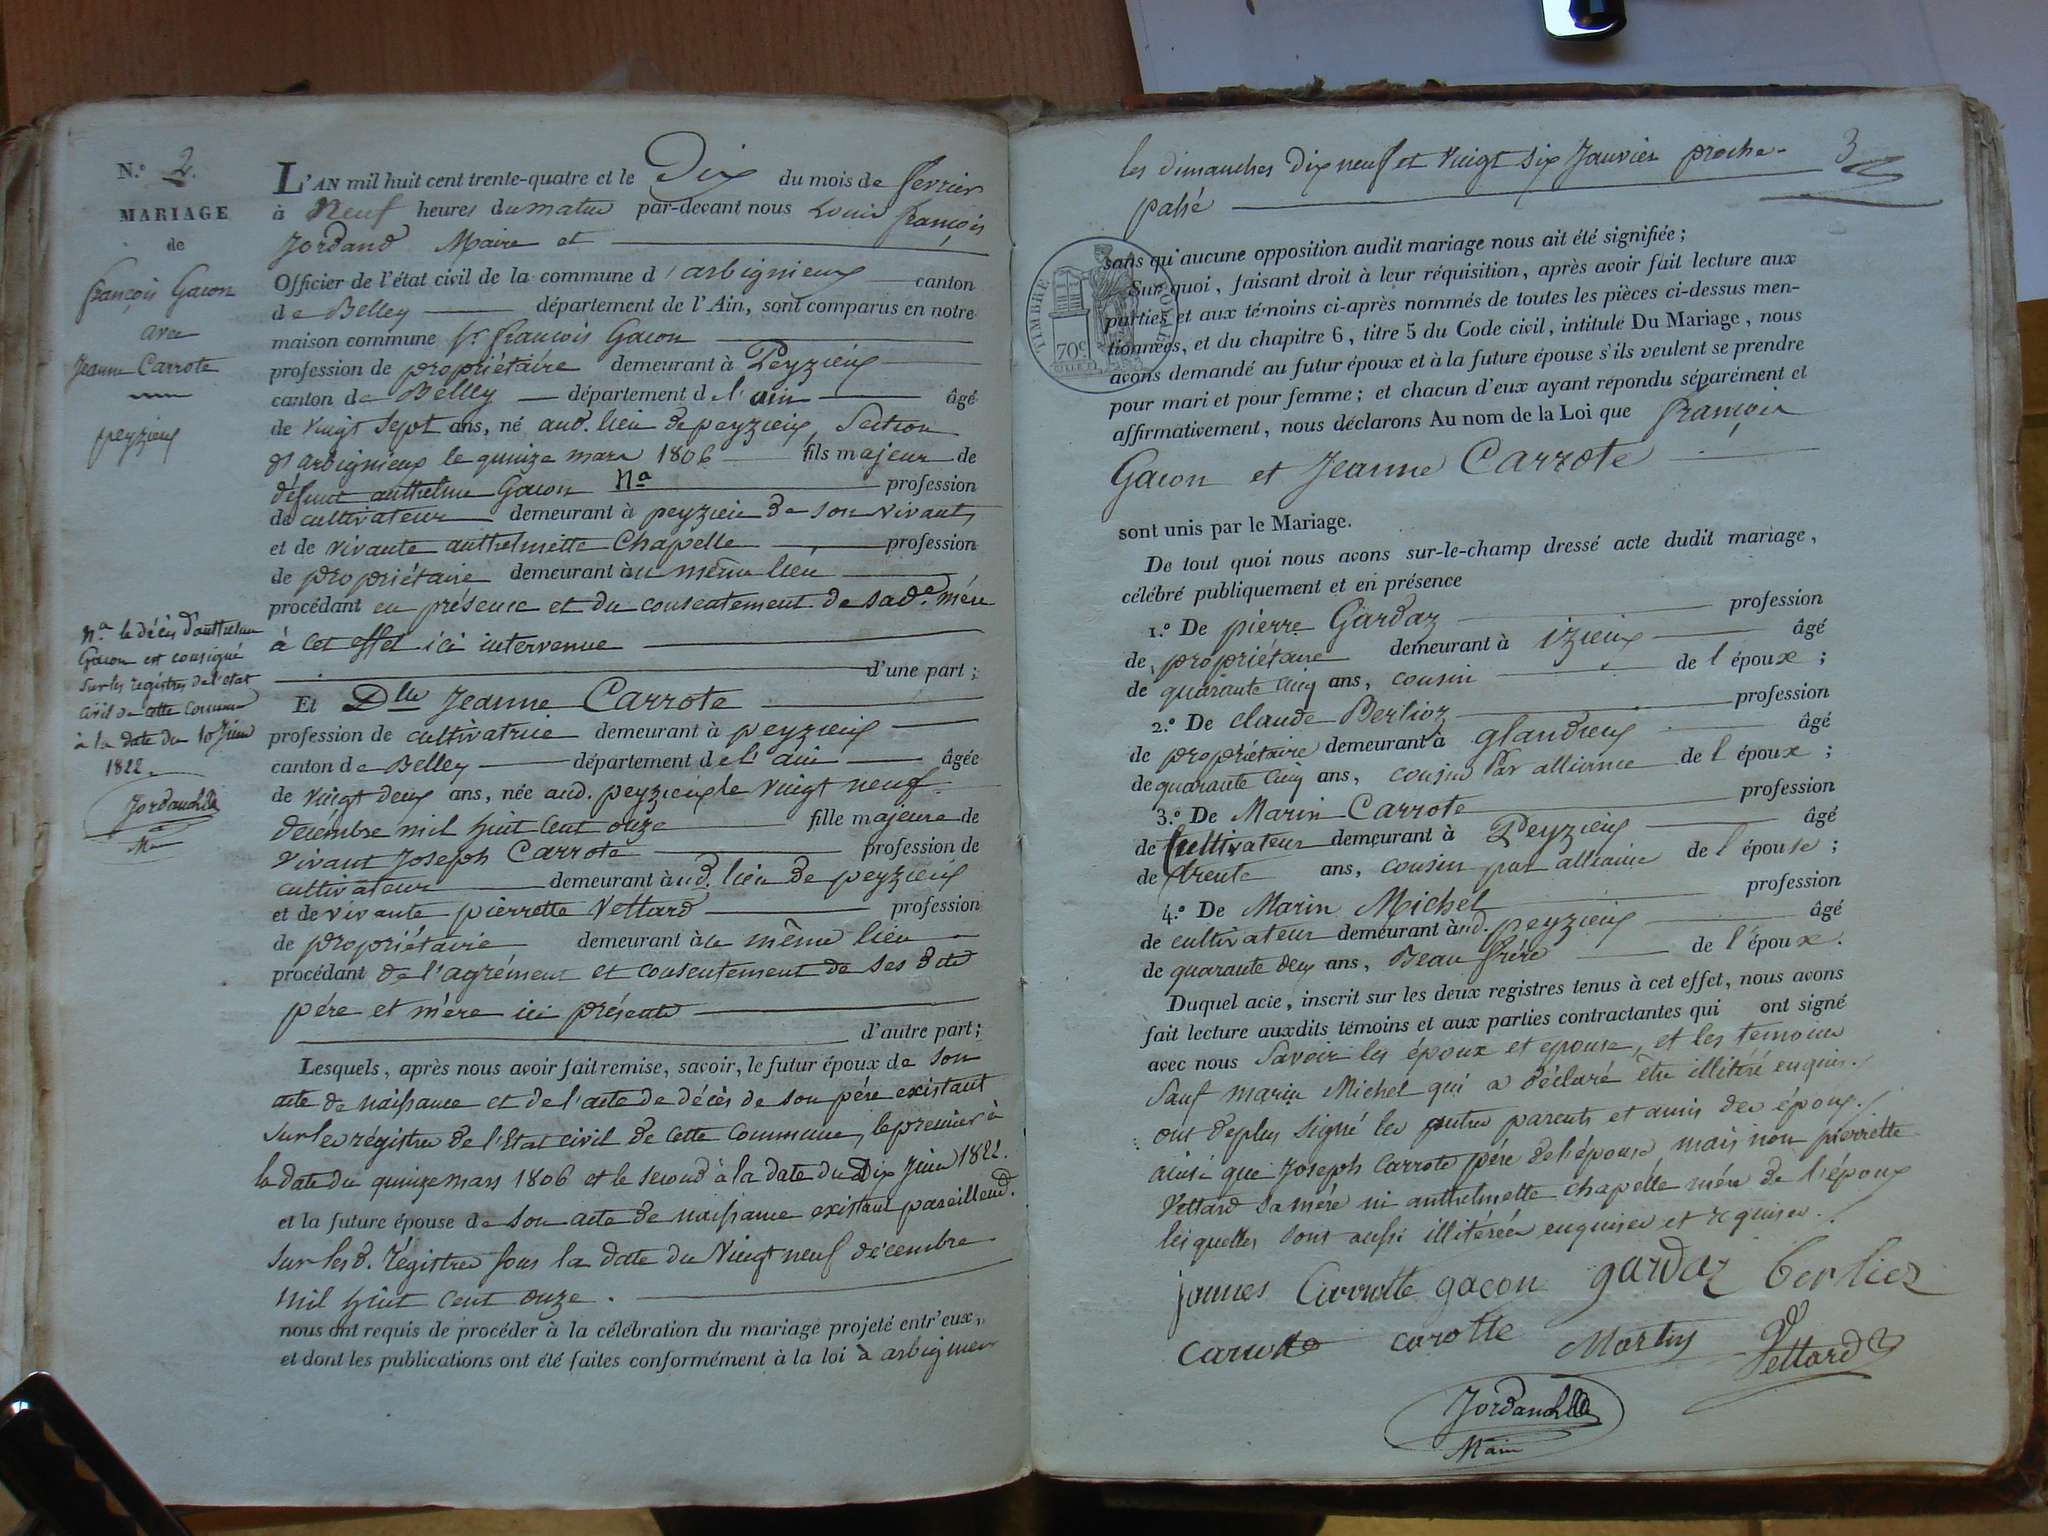 N.º 2.
MARIAGE
de
françois Gacon
avec
Jeanne Carrote
peyzieux
N.ª le décès d'anthelme
Gacon est consigné
sur les régistres de l'etat
civil de cette Commune
à la date du 10 Juin
1822.
Jordand
Mre
L'AN mil huit cent trente-quatre et le Dix du mois de fevrier
à Neuf heures du matin par-devant nous Louis françois
Jordand Maire et
Officier de l'état civil de la commune d'arbignieux canton
de Belley département de l'Ain, sont comparus en notre
maison commune sr. francois Gacon
profession de propriétaire demeurant à Peyzieux
canton de Belley département de l'ain âgé
de vingt sept ans, né aud. lieu de peyzieux, Section
d'arbignieux le quinze mars 1806 fils majeur de
défunt anthelme Gacon Nª profession
de cultivateur demeurant à peyzieu de son vivant
et de vivante anthelmette Chapelle profession
de propriétaire demeurant au même lieu
procédant en présence et du consentement de sa de. mére
à cet effet ici intervenue
d'une part;
Et Dlle Jeanne Carrote
profession de cultivatrice demeurant à peyzieux
canton de Belley département de l'ain âgée
de vingt deux ans, née aud. peyzieux le vingt neuf
decémbre mil huit cent onze fille majeure de
vivant Joseph Carrote profession de
cultivateur demeurant aud. lieu de peyzieux
et de vivante pierrette Vettard profession
de propriétaire demeurant au même lieu
procédant de l'agrément et consentement de ses dits
pére et mère ici présents
d'autre part;
Lesquels, après nous avoir fait remise, savoir, le futur époux de son
acte de naissance et de l'acte de décès de son pére existant
sur les régistres de l'Etat civil de cette Commune, le premier à
la date du quinze mars 1806 et le second à la date du Dix Juin 1822.
et la future épouse de son acte de naissance existant pareillemt.
sur les d. régistres sous la date du vingt neuf décembre
mil huit cent onze.
nous ont requis de procéder à la célébration du mariage projeté entr'eux,
et dont les publications ont été faites conformément à la loi à arbignieu
les dimanches dix neuf et vingt six Janvier proche- 3
passé
TIMBRE ROYAL
70c
sans qu'aucune opposition audit mariage nous ait été signifiée;
Sur quoi, faisant droit à leur réquisition, après avoir fait lecture aux
parties et aux témoins ci-après nommés de toutes les pièces ci-dessus men-
tionnées, et du chapitre 6, titre 5 du Code civil, intitulé Du Mariage, nous
avons demandé au futur époux et à la future épouse s'ils veulent se prendre
pour mari et pour femme; et chacun d'eux ayant répondu séparément et
affirmativement, nous déclarons Au nom de la Loi que françois
Gacon et Jeanne Carrote
sont unis par le Mariage.
De tout quoi nous avons sur-le-champ dressé acte dudit mariage,
célébré publiquement et en présence
1.º De pierre Gardaz profession
de propriétaire demeurant à izieux âgé
de quarante cinq ans, cousin de l'époux;
2.º De claude Berlioz profession
de propriétaire demeurant à glandieux âgé
de quarante cinq ans, cousin Par alliance de l'époux;
3.º De Marin Carrote profession
de Cultivateur demeurant à Peyzieux âgé
de trente ans, cousin par alliance de l'épouse;
4.º De Marin Michel profession
de cultivateur demeurant aud. peyzieux âgé
de quarante deux ans, Beau frére de l'époux.
Duquel acte, inscrit sur les deux registres tenus à cet effet, nous avons
fait lecture auxdits témoins et aux parties contractantes qui ont signé
avec nous Savoir les époux et epouse, et les temoins
Sauf marin Michel qui a déclaré être illitéré enquis.
ont deplus signé les autres parents et amis des époux.
ainsi que Joseph Carrote pére de l'épouse, mais non pierrette
Vettard sa mére ni anthelmette chapelle mére de l'époux
lesquelles sont aussi illitérées enquises et requises.
jannes Carrotte gacon gardaz berlioz
carrotte carotte Martin Vettard
Jordand
Maire